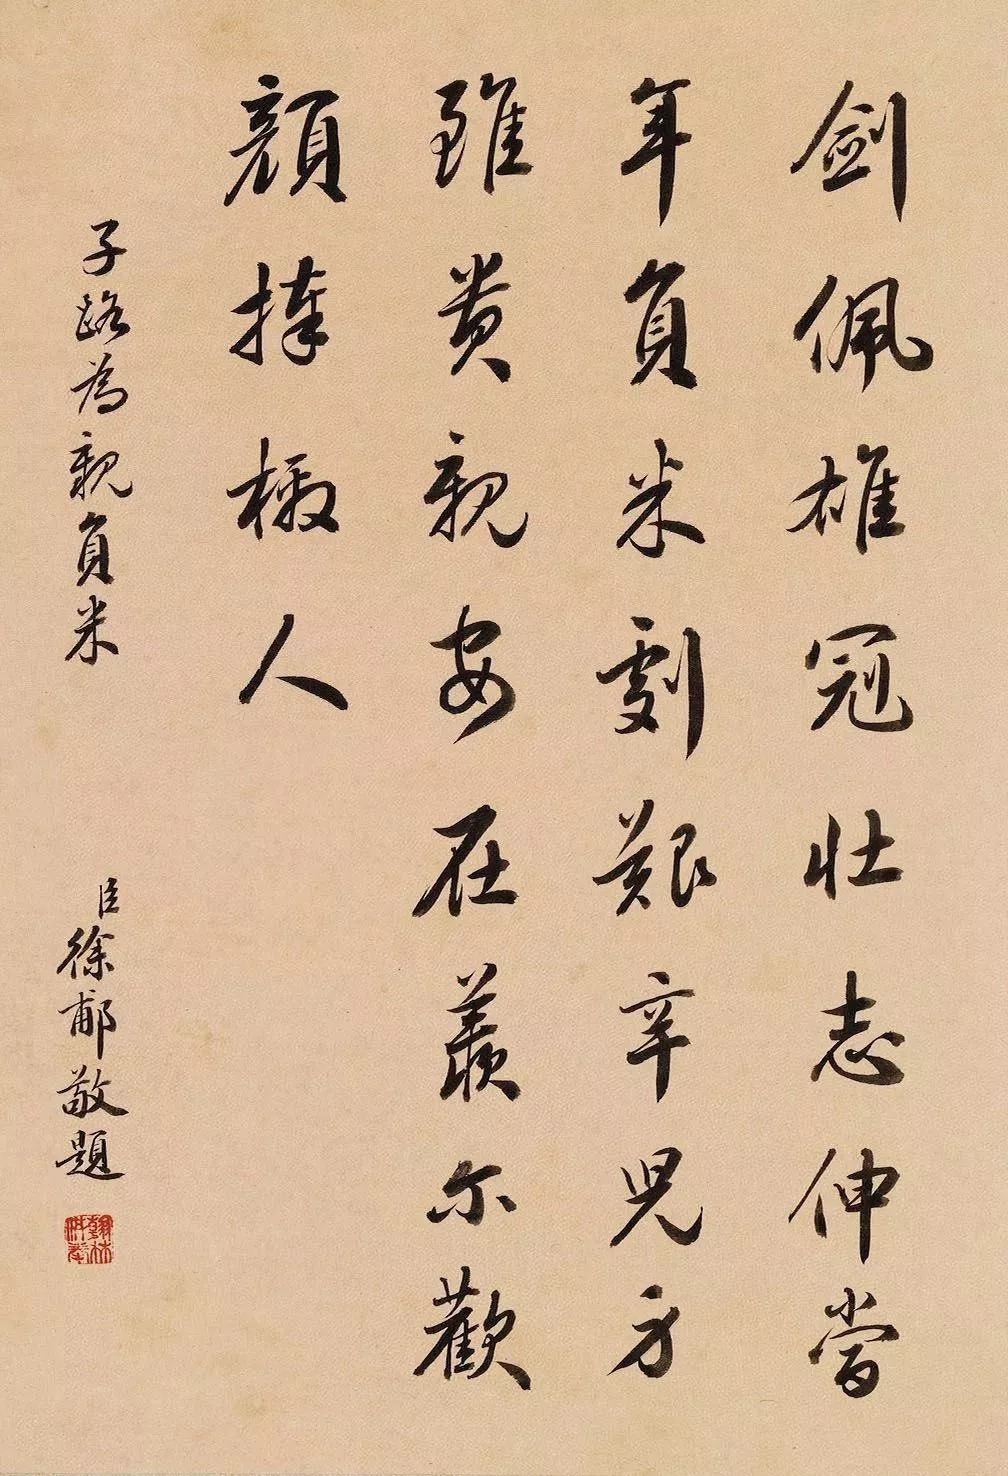 劍佩雄冠壯志伸當
年負米劇艱辛兒方
雖貴親安在羨尔歡
顏捧檄人
子路為親負米
臣徐郙敬題
翰林供奉